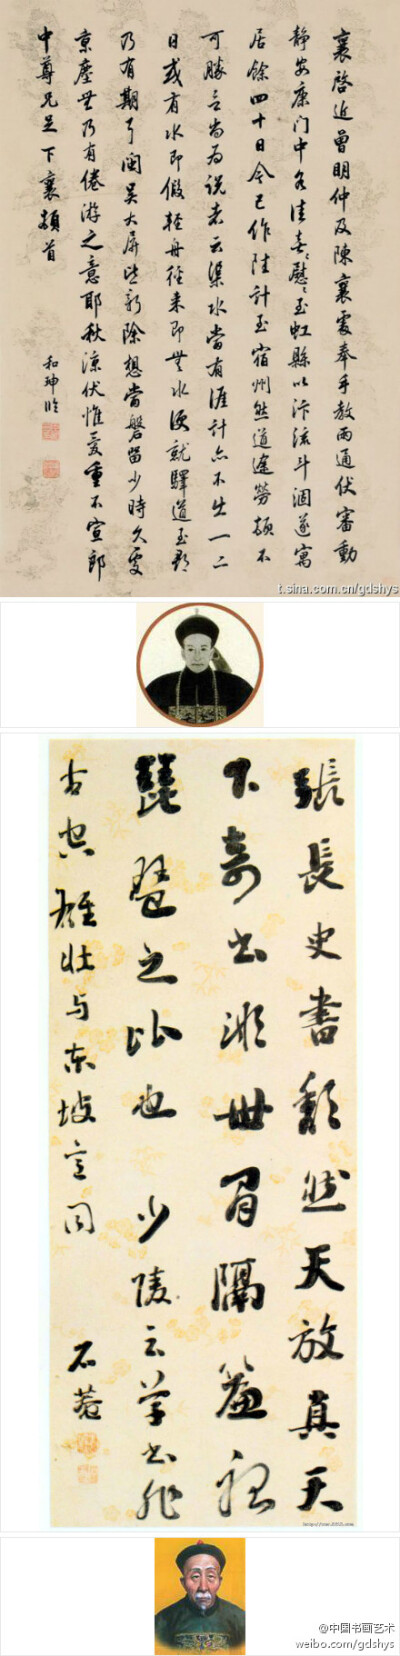 襄啓近曾明仲及陳襄處奉手教兩通伏審動
静安康门中各佳喜〻慰〻至虹縣以汴流斗涸遂寓
居餘四十日今已作陸計至宿州然道途勞頓不
可勝言尚為說者云渠水當有涯計亦不出一二
日或有水即假輕舟徑来即無水便就驛道至都
乃有期耳閩吴大屏皆新除想當磐留少時久處
京塵無乃有倦游之意耶秋涼伏惟愛重不宣郎
中尊兄足下襄頓首
和珅临
t.sina.com.cn/gdshys
張長史書顛然天放真天
下奇書㳽世間隔簾視
琵琶之比也少陵云草書非
古空雄壮与東坡言同
石菴
@中国书画艺术
weibo.com/gdshys